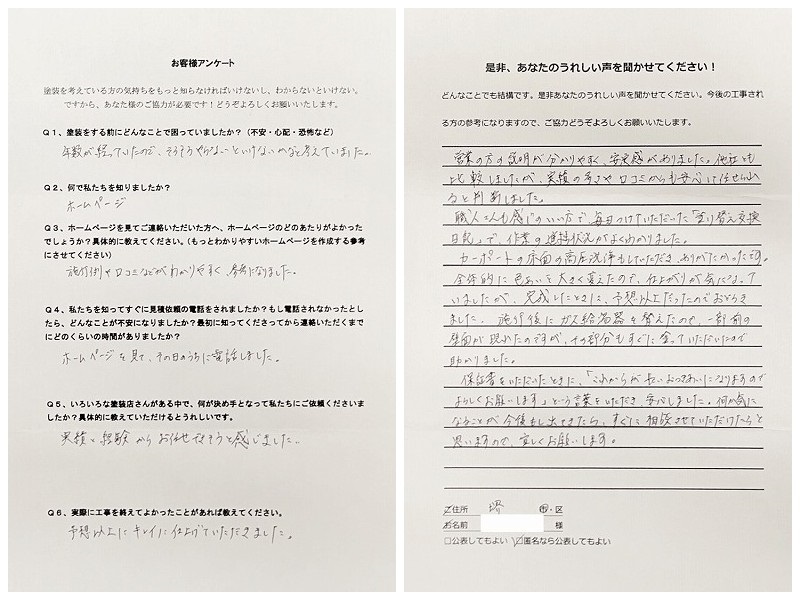 お客様アンケート
塗装を考えている方の気持ちをもっと知らなければいけないし、わからないといけない。
ですから、あなた様のご協力が必要です！どうぞよろしくお願いいたします。
Q１、塗装をする前にどんなことで困っていましたか？（不安・心配・恐怖など）
年数が経っていたので、そろそろやらないといけないかなと考えていました。
Q２、何で私たちを知りましたか？
ホームページ
Q３、ホームページを見てご連絡いただいた方へ、ホームページのどのあたりがよかった
でしょうか？具体的に教えてください。（もっとわかりやすいホームページを作成する参考
にさせてください）
施行例や口コミなどがわかりやすく、参考になりました。
Q４、私たちを知ってすぐに見積依頼の電話をされましたか？もし電話されなかったとし
たら、どんなことが不安になりましたか？最初に知ってくださってから連絡いただくまで
にどのくらいの時間がありましたか？
ホームページを見て、その日のうちに電話しました。
Q５、いろいろな塗装店さんがある中で、何が決め手となって私たちにご依頼くださいま
したか？具体的に教えていただけるとうれしいです。
実績と経験からお任せできそうと感じました。
Q６、実際に工事を終えてよかったことがあれば教えてください。
予想以上にキレイに仕上げていただきました。
是非、あなたのうれしい声を聞かせてください！
どんなことでも結構です。是非あなたのうれしい声を聞かせてください。今後の工事され
る方の参考になりますので、ご協力どうぞよろしくお願いいたします。
営業の方の説明が分かりやすく、安定感がありました。他社とも
比較しましたが、実績の多さや口コミからも安心に任せられ
ると判断しました。
職人さんも感じのいい方で毎日つけていただいた「塗り替え交換
日記」で、作業の進捗状況がよくわかりました。
カーポートの床面の高圧洗浄もしていただき、ありがたかったです。
全体的に色あいを大きく変えたので、仕上がりが気になって
いましたが、完成したときに、予想以上だったのでおどろき
ました。施行後にガス給湯器を替えたので、一部前の
壁面が現れたのですが、その部分もすぐに塗っていただいたので
助かりました。
保証書をいただいたときに、「これからが長いおつきあいになりますので
よろしくお願いします」という言葉をいただき、安心しました。何か気に
なることが今後も出てきたら、すぐに相談させていただけたらと
思いますので、宜しくお願いします。
ご住所 堺 市・区
お名前 様
□公表してもよい ☑匿名なら公表してもよい